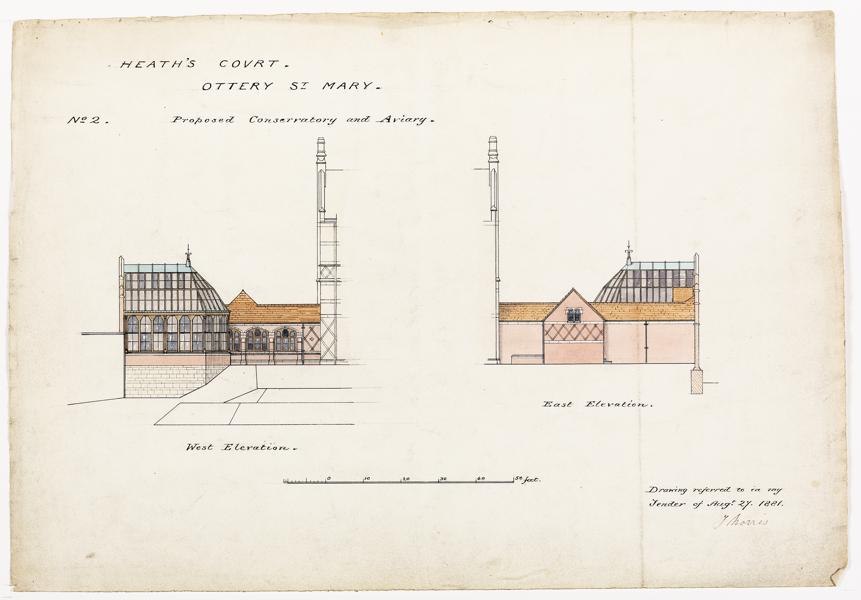 HEATH'S COVRT.
OTTERY ST MARY.
No 2. Proposed Conservatory and Aviary.
West Elevation.
East Elevation.
0 10 20 30 40 50 feet.
Drawing referred to in my
Tender of Augt 27. 1881.
J Morris